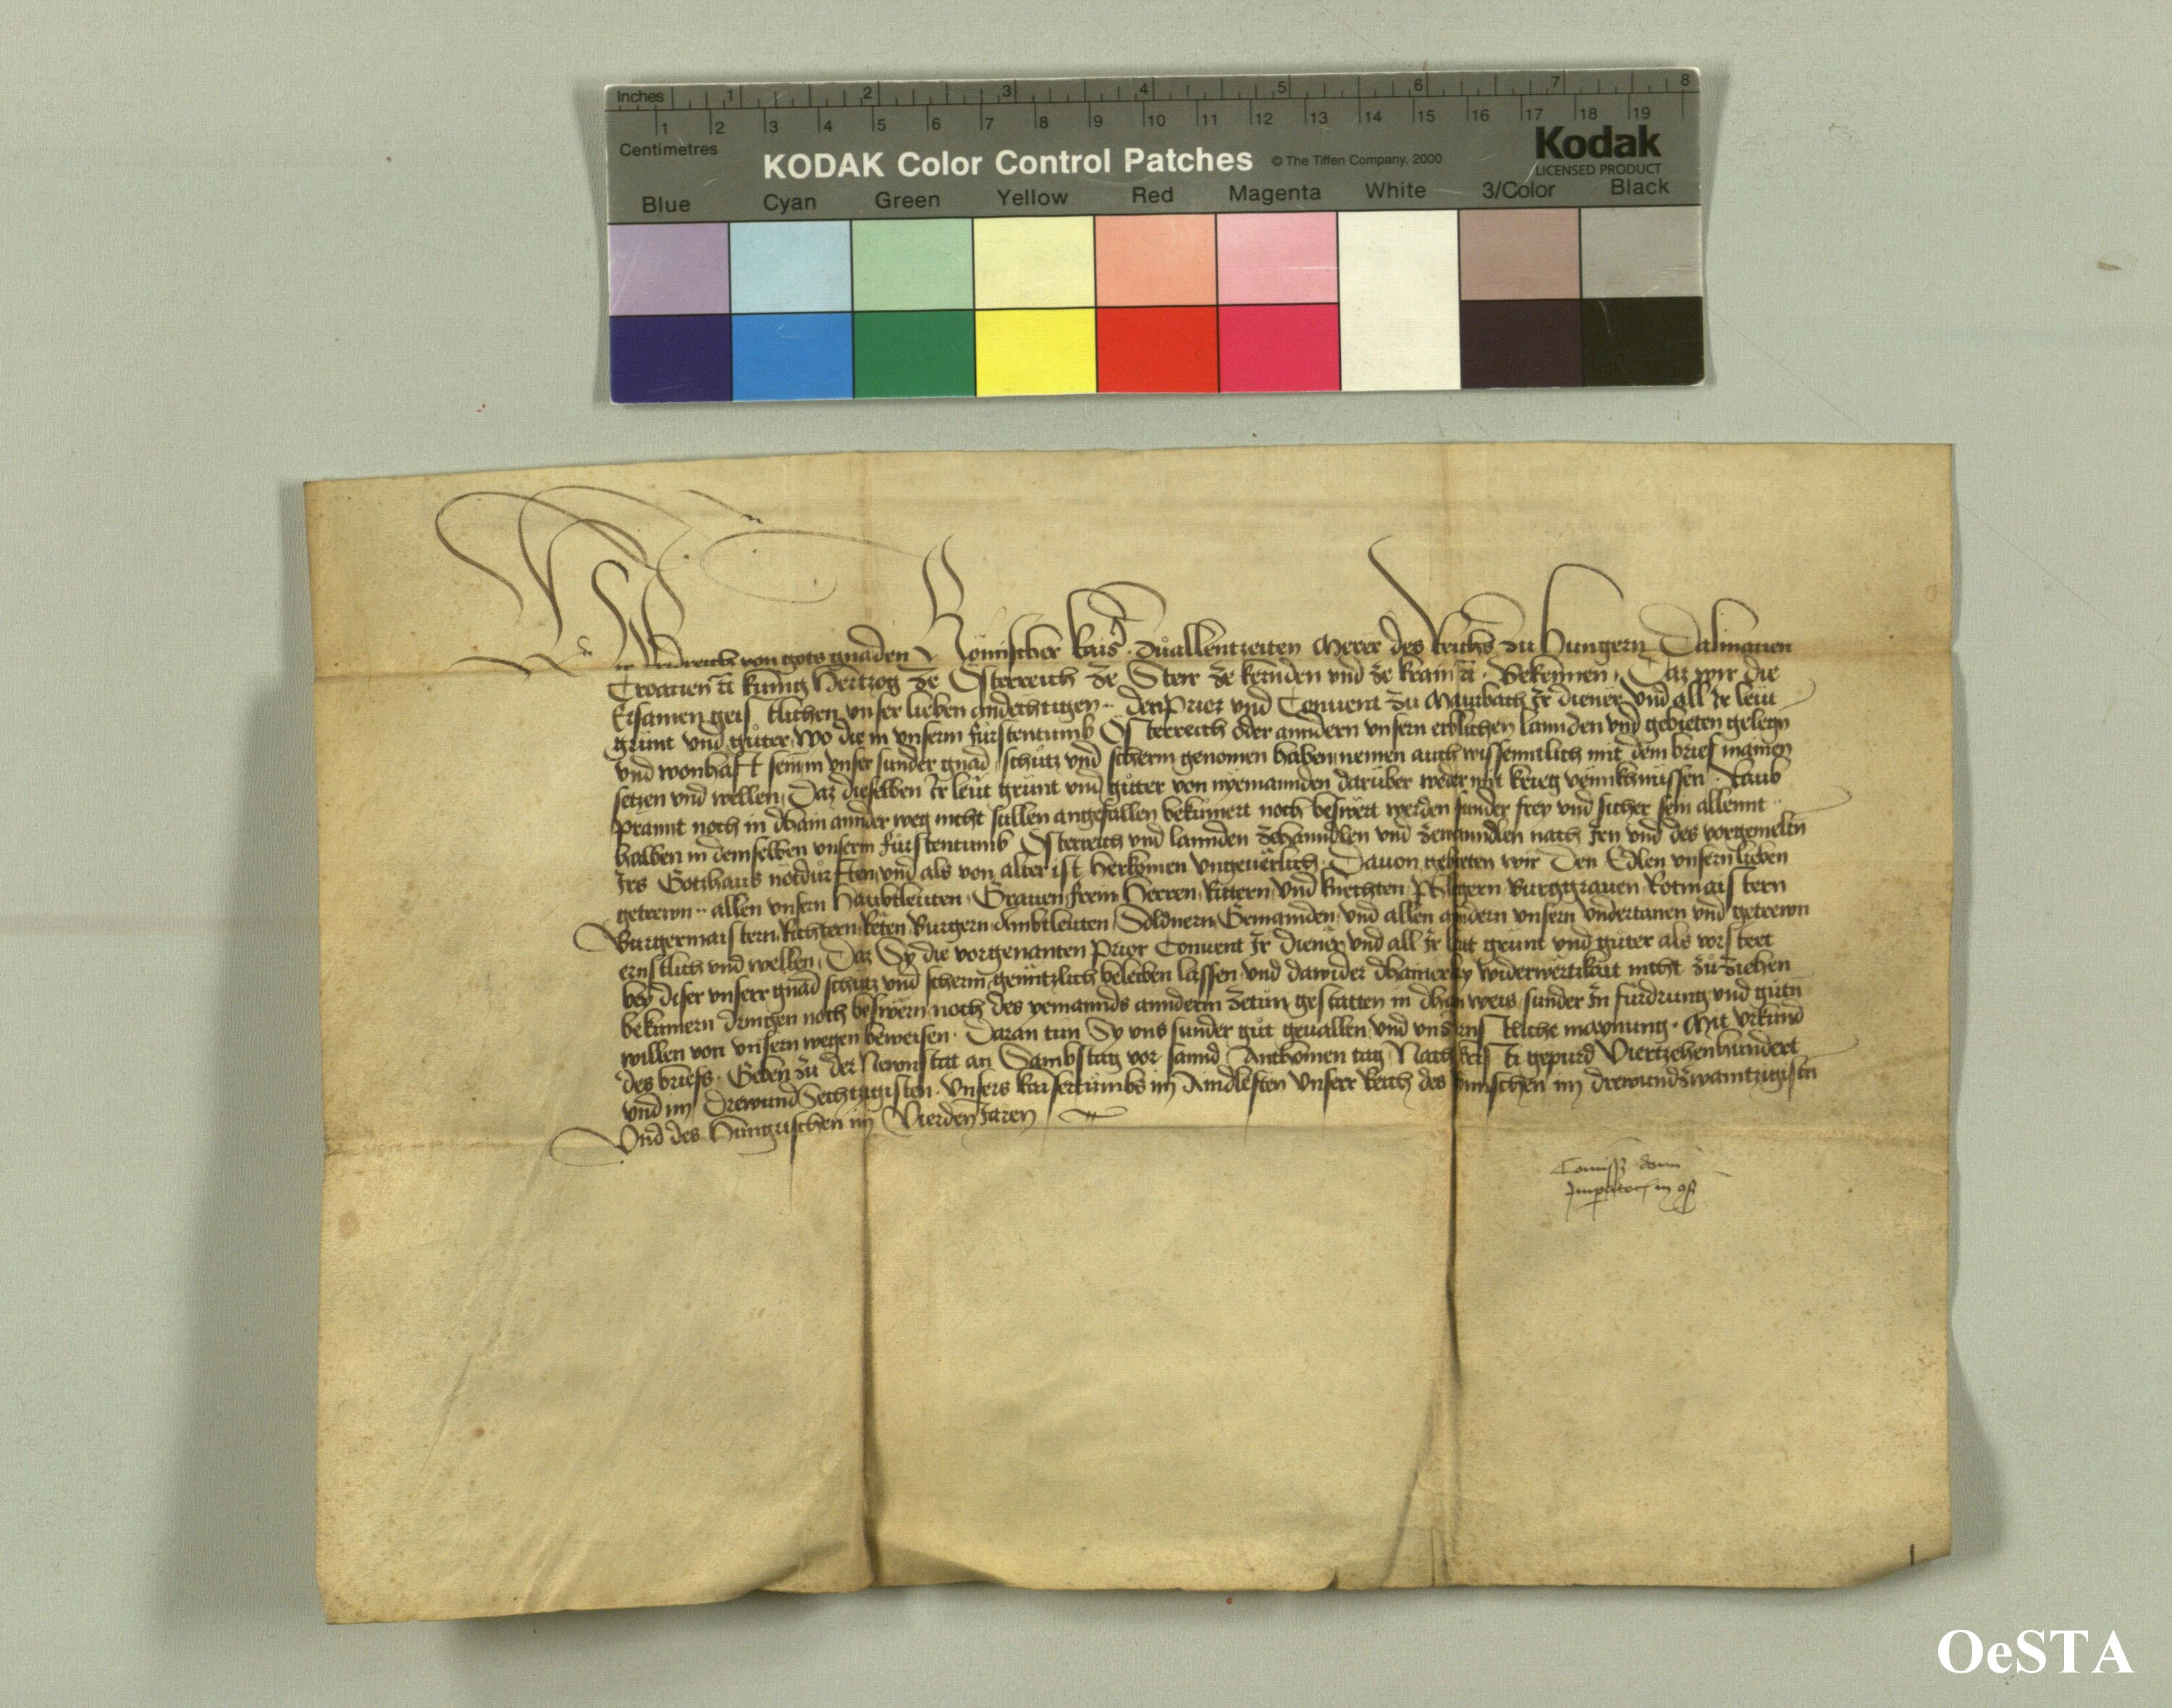 Inches 1 2 3 4 5 6 7 8
1 2 3 4 5 6 7 8 9 10 11 12 13 14 15 16 17 18 19
Centimetres
KODAK Color Control Patches © The Tiffen Company, 2000
Kodak
LICENSED PRODUCT
Blue Cyan Green Yellow Red Magenta White 3/Color Black
von gots gnaden Römischer kaiser zuallentzeiten Merer des Reichs zu Hungern Dalmacien
Croacien etc kunig Hertzog ze Österreich ze Steir ze kernden und ze krain etc. Bekennen, Daz wir die
Ersamen geistlichen unser lieben andechtigen .. den Prior und Convent zu Maurbach Ir diener und all Ir leut
grunt und guter, wo die in unserm furstentumb Österreich oder anndern unsern erblichen lannden und gebieten gelegn
und wonhaft sein in unser sunder gnad schutz und scherm genomen haben nemen auch wissenntlich mit dem brief mainen
setzen und wellen, Daz dieselben Ir leut grunt und guter von nyemannden darüber weder mit krieg Raub
Prannt noch in dhain annder weg nicht sullen angefallen bekumert noch beswert werden sunder frey und sicher sein allennt
halben in demselben unserm furstentumb Österreich und lannden zehanndlen und zewanndlen nach Iren und des vorgemeltn
Irs Gotzhaus notdurften und als von alter ist herkomen ungeuerlich. Dauon gebieten wir Den Edlen unsern lieben
getrewn .. allen unsern Haubtleuten, Grauen, frein, Herren, Rittern und knechten, Phlegern Burggrauen Rotmaistern
Burgermaistern, Richtern, Reten, Burgern, Ambtleuten, Soldnern, Gemainden, und allen andern unsern undertanen und getrewn
ernstlich und wellen, Daz Sy die vorgenanten Prior Convent Ir diener und all Ir leut grunt und guter als vorsteet
bey diser unserr gnad schutz und scherm genntzlich beleiben lassen und dawider dhainerley widerwertikait nicht zuziehen
bekumern dringen noch beswern noch des yemannds anderm zetun gestatten in dhain weis, sunder In furdrung und gutn
willen von unsern wegen beweisen. Daran tun Sy uns sunder gut geuallen und unser ernstliche maynung. Mit urkund
des briefs. Geben zu der Newnstat an Sambstag vor sannd Anthonien tag Nach kristi gepurd Viertzehenhundert
und im DrewundSechtzigisten. Unsers kaisertumbs im Aindleften Unserr Reich des Römischen im drewundzwaintzigistn
Und des Hungrischen im Vierden Jaren
Commissio domini
Imperatoris in
OeSTA